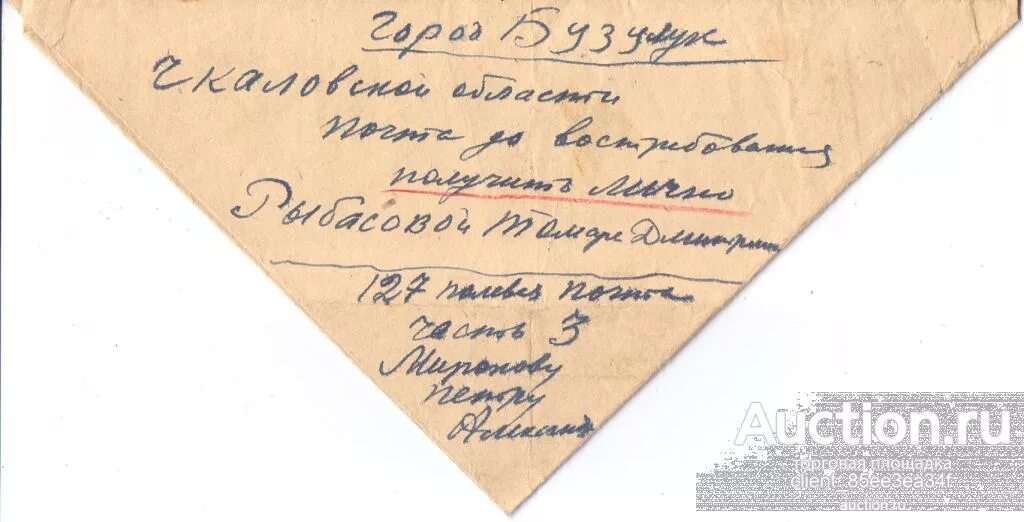 Город Бузулук
Чкаловской области
почта до востребования
получить лично
Рыбасовой Тамаре Дмитриевн
127 полевая почта
часть 3
Миронову
Петру
Александ
Auction.ru
торговая площадка
client_85ee3ea34f
auction.ru